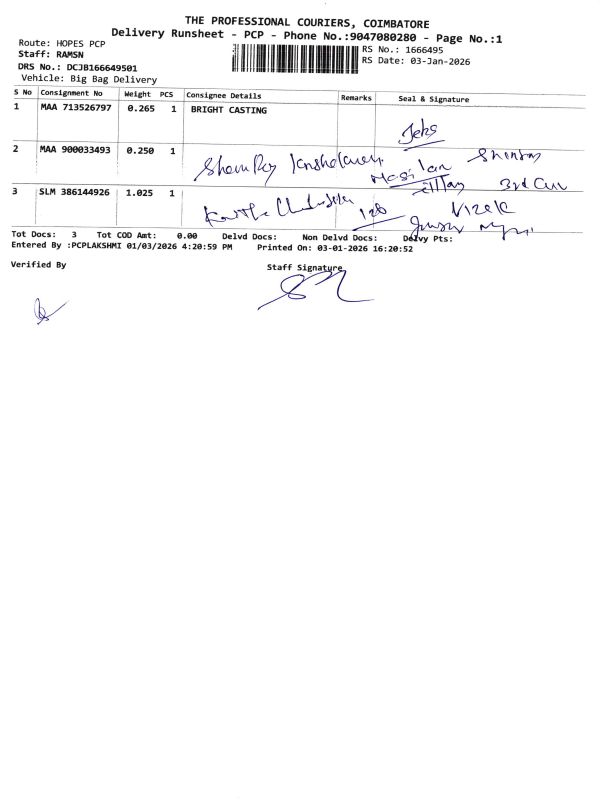 THE PROFESSIONAL COURIERS, COIMBATORE
Delivery Runsheet - PCP - Phone No.:9047080280 - Page No.:1
Route: HOPES PCP
Staff: RAMSN
DRS No.: DCJB166649501
Vehicle: Big Bag Delivery
RS No.: 1666495
RS Date: 03-Jan-2026
S No Consignment No Weight PCS Consignee Details Remarks Seal & Signature
1 MAA 713526797 0.265 1 BRIGHT CASTING
2 MAA 900033493 0.250 1
3rd
3 SLM 386144926 1.025 1
Tot Docs: 3 Tot COD Amt: 0.00 Delvd Docs: Non Delvd Docs: Delvy Pts:
Entered By :PCPLAKSHMI 01/03/2026 4:20:59 PM Printed On: 03-01-2026 16:20:52
Verified By
Staff Signature